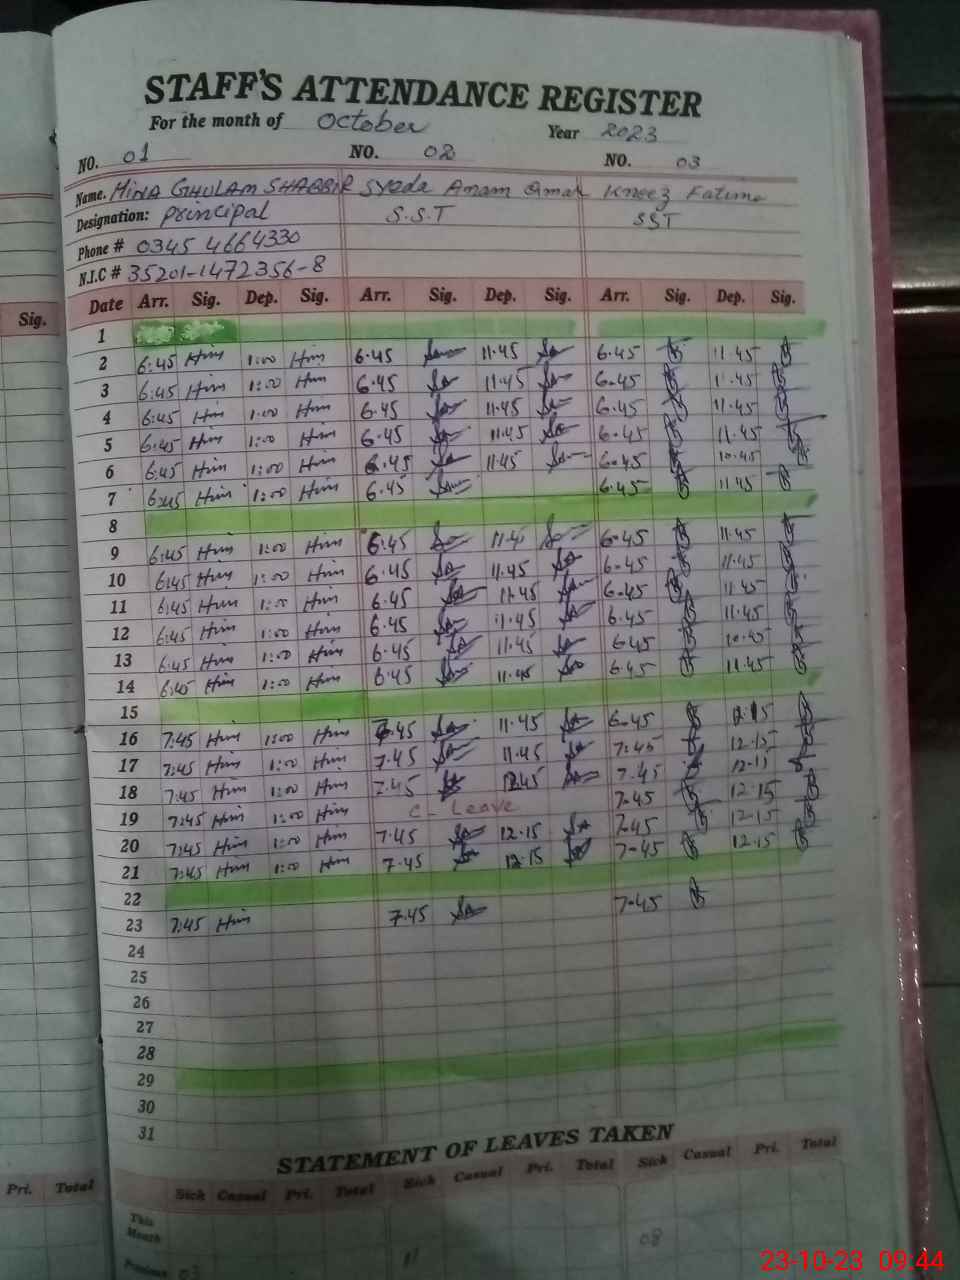 STAFF'S ATTENDANCE REGISTER
For the month of October Year 2023
NO. 01 NO. 02 NO. 03
Name. HINA GHULAM SHABBIR Syeda Anam Qmar Kneez Fatima
Designation: Principal S.S.T SST
Phone # 0345 4664330
N.I.C # 35201-1472356-8
Sig. Date Arr. Sig. Dep. Sig. Arr. Sig. Dep. Sig. Arr. Sig. Dep. Sig.
1
2 6:45 Hina 1:00 Hina 6.45 11.45 6.45 11.45
3 6:45 Hina 1:00 Hina 6.45 11.45 6.45 11.45
4 6:45 Hina 1:00 Hina 6.45 11.45 6.45 11.45
5 6:45 Hina 1:00 Hina 6.45 11.45 6.45 11.45
6 6:45 Hina 1:00 Hina 6.45 11.45 6.45 10.45
7 6:45 Hina 1:00 Hina 6.45 6.45 11.45
8
9 6:45 Hina 1:00 Hina 6.45 11.45 6.45 11.45
10 6:45 Hina 1:00 Hina 6.45 11.45 6.45 11.45
11 6:45 Hina 1:00 Hina 6.45 11.45 6.45 11.45
12 6:45 Hina 1:00 Hina 6.45 11.45 6.45 11.45
13 6:45 Hina 1:00 Hina 6.45 11.45 6.45 10.45
14 6:45 Hina 1:00 Hina 6.45 11.45 6.45 11.45
15
16 7:45 Hina 1:00 Hina 7.45 11.45 6.45 12.15
17 7:45 Hina 1:00 Hina 7.45 11.45 7.45 12.15
18 7:45 Hina 1:00 Hina 7.45 12.45 7.45 12.15
19 7:45 Hina 1:00 Hina C- Leave 7.45 12.15
20 7:45 Hina 1:00 Hina 7.45 12.15 7.45 12.15
21 7:45 Hina 1:00 Hina 7.45 12.15 7.45 12.15
22
23 7:45 Hina 7.45 7.45
24
25
26
27
28
29
30
31
STATEMENT OF LEAVES TAKEN
Pri. Total Sick Casual Pri. Total Sick Casual Pri. Total Sick Casual Pri. Total
This
Month 08
Previous
23-10-23 09:44